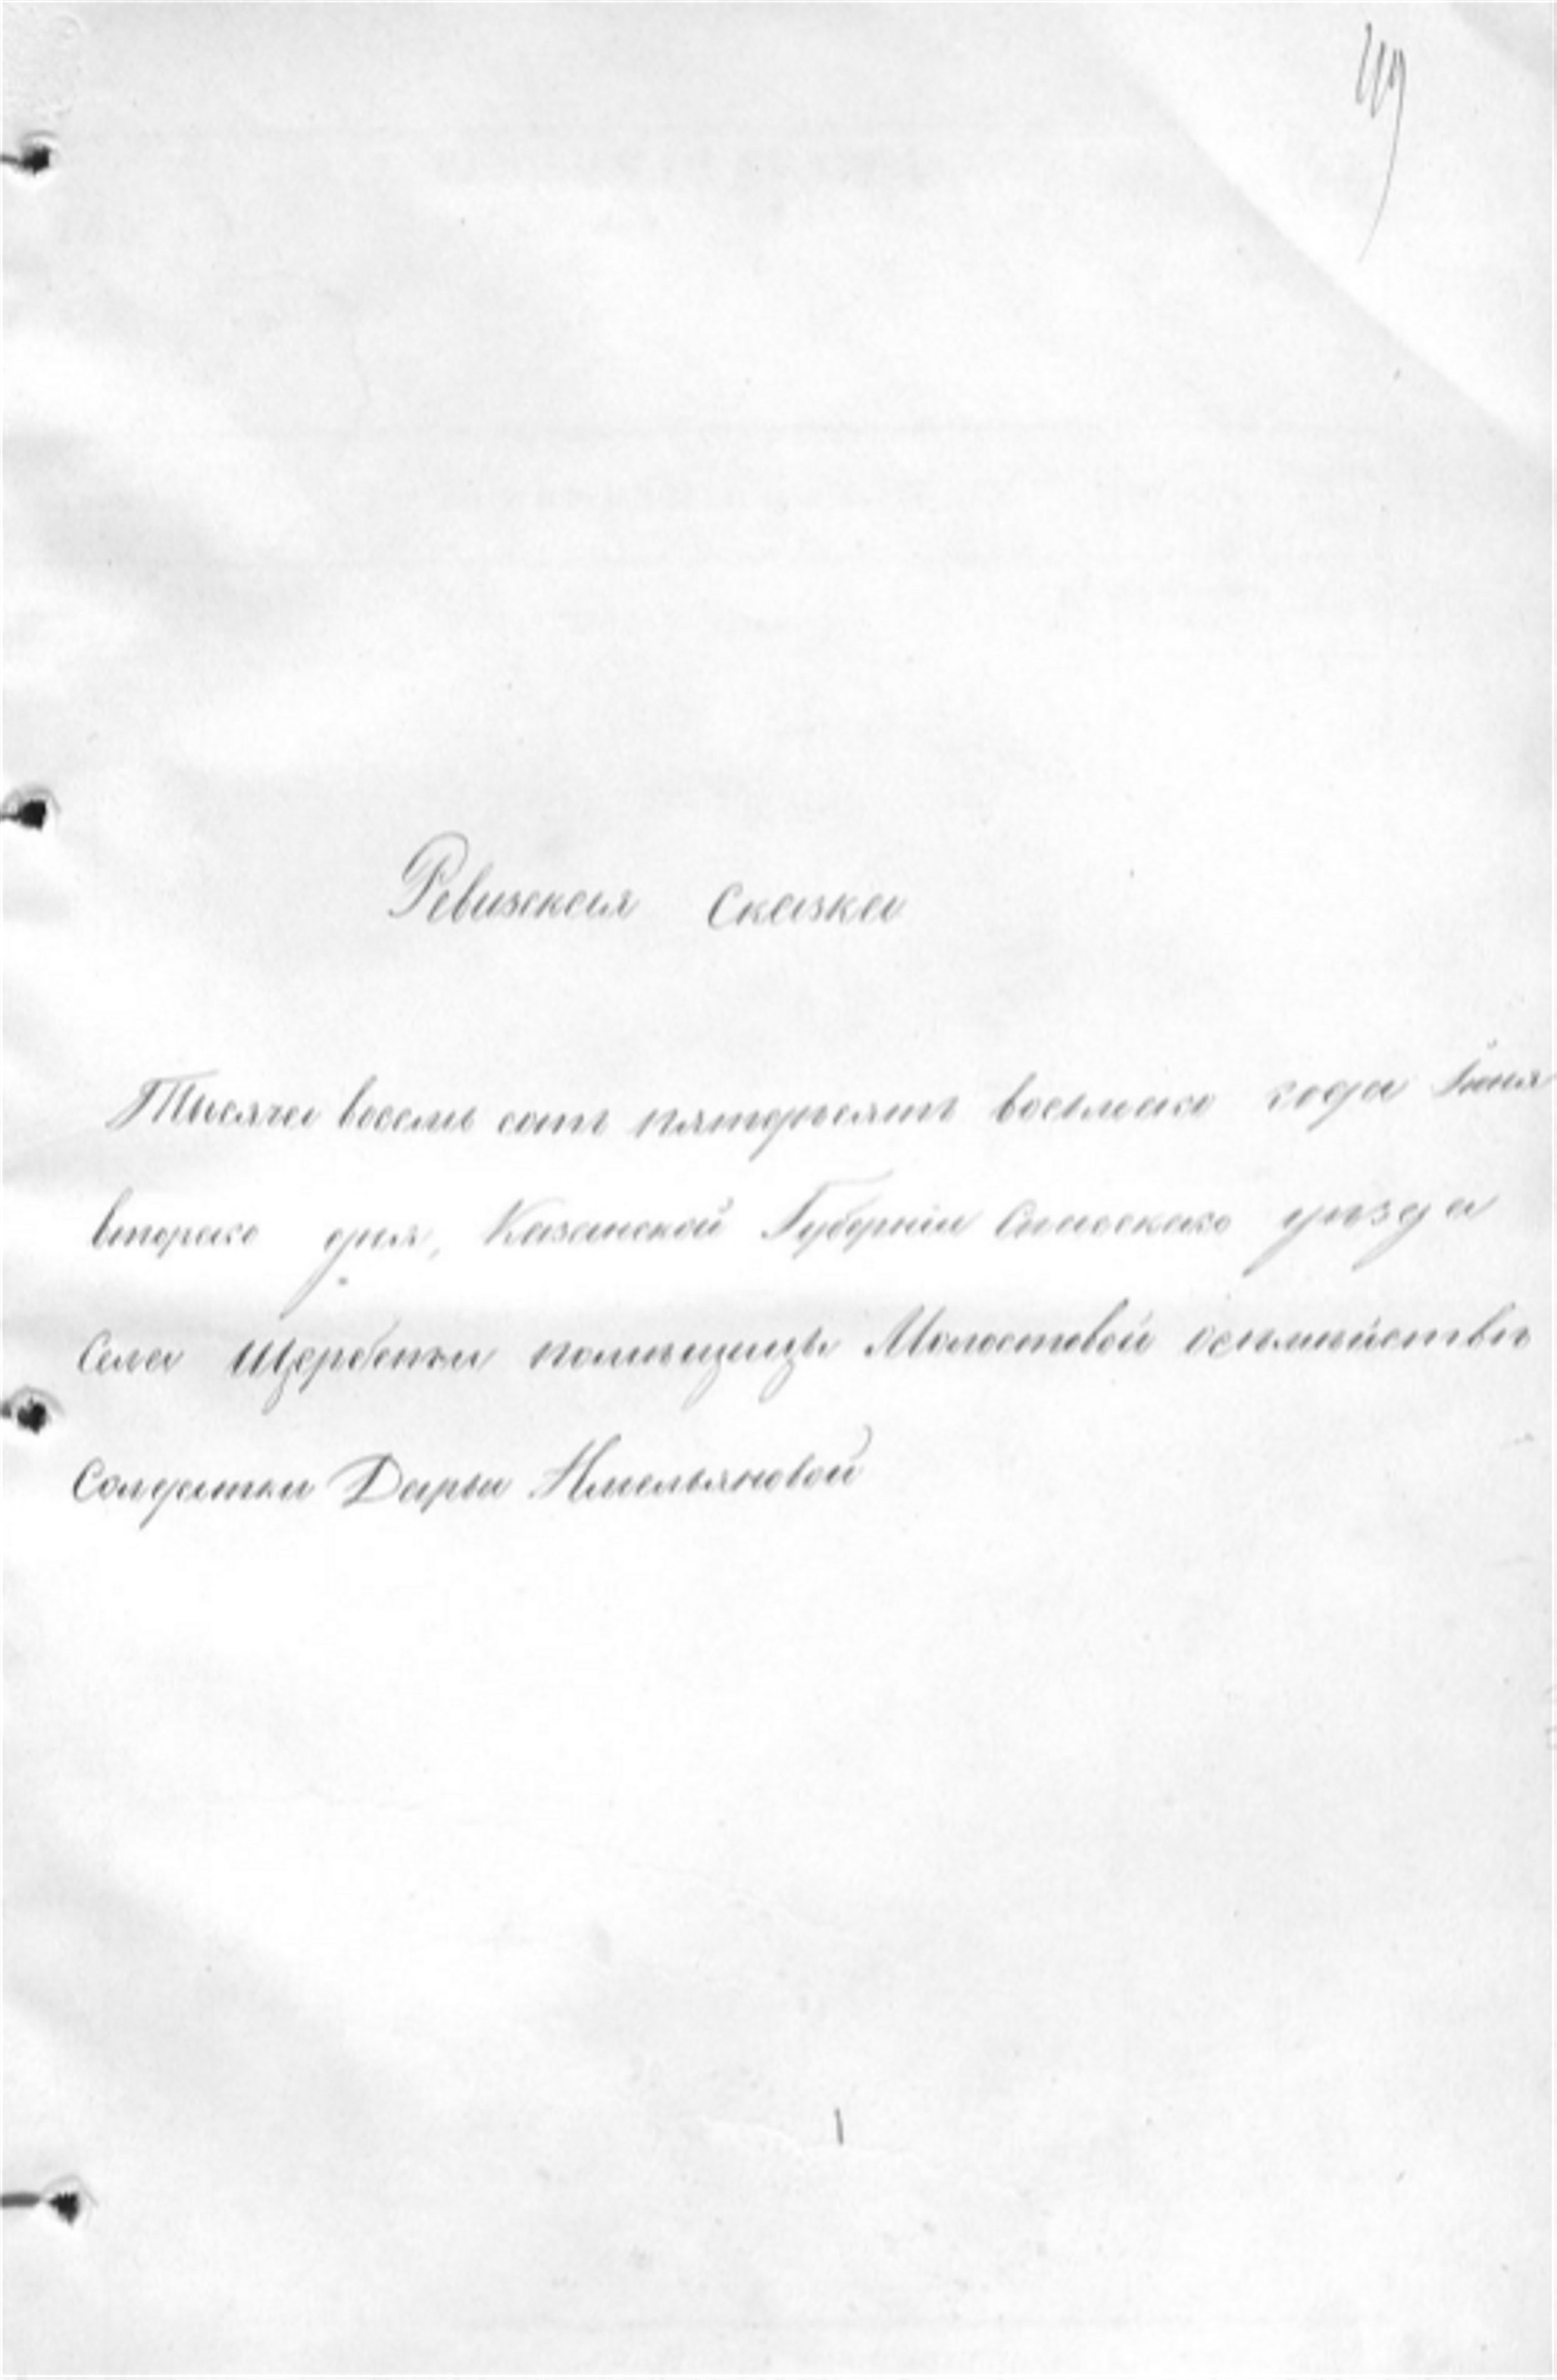 119
Ревизская Сказка
Тысяча восемь сотъ пятдесятъ восьмаго года Іюня
втораго дня, Казанской Губерніи Спаскаго уѣзда
Села Щербети помѣщицы Молостовой осемѣйствѣ
Солдатки Дарьи Амельяновой